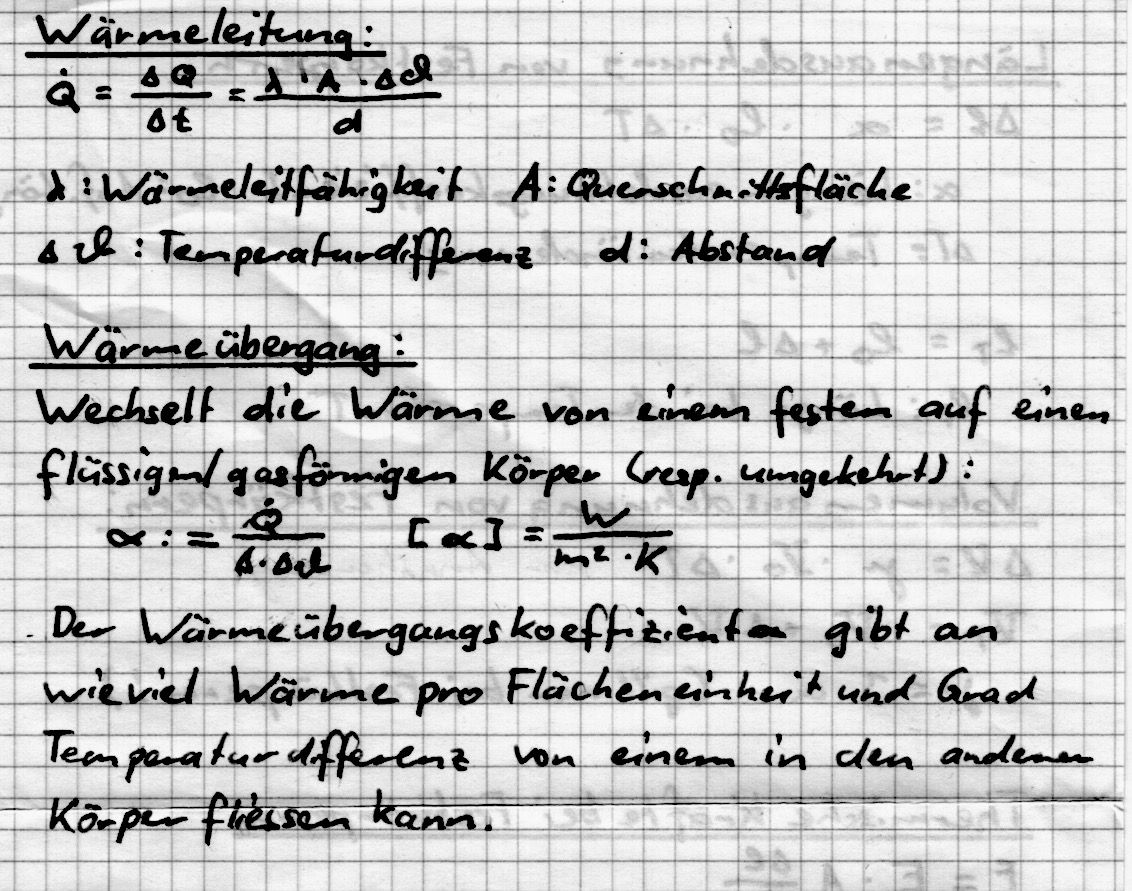 Wärmeleitung:
Q̇ = ΔQ/Δt = λ · A · Δϑ / d
λ : Wärmeleitfähigkeit A: Querschnittsfläche
Δϑ : Temperaturdifferenz d: Abstand
Wärmeübergang:
Wechselt die Wärme von einem festen auf einen
flüssigen/gasförmigen Körper (resp. umgekehrt):
α := Q̇ / A·Δϑ [α] = W / m² · K
Der Wärmeübergangskoeffizient α gibt an
wieviel Wärme pro Flächeneinheit und Grad
Temperaturdifferenz von einem in den anderen
Körper fliessen kann.